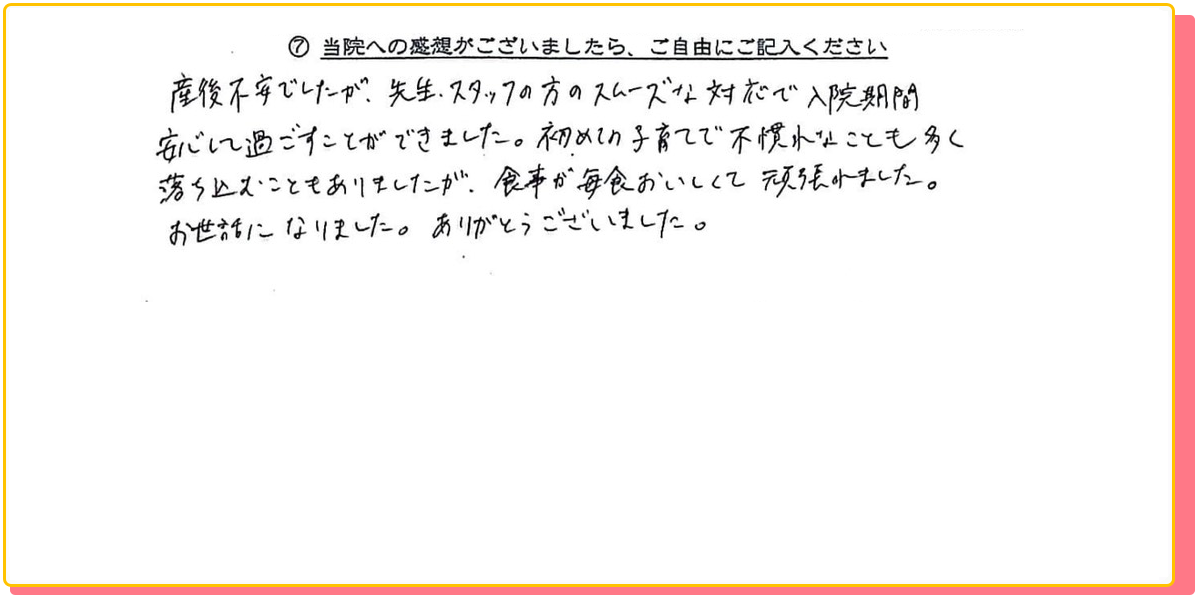 ⑦ 当院への感想がございましたら、ご自由にご記入ください
産後不安でしたが、先生・スタッフの方のスムーズな対応で入院期間
安心して過ごすことができました。初めての子育てで不慣れなことも多く
落ち込むこともありましたが、食事が毎食おいしくて頑張れました。
お世話になりました。ありがとうございました。